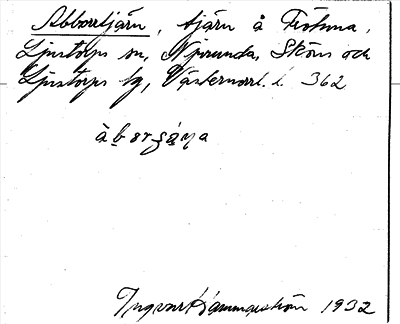 Abborrtjärn, tjärn å Frötuna,
Ljustorps sn, Njurunda, Sköns och
Ljustorps tg, Västernorrl. l. 362
Ingvar Hammarström 1932